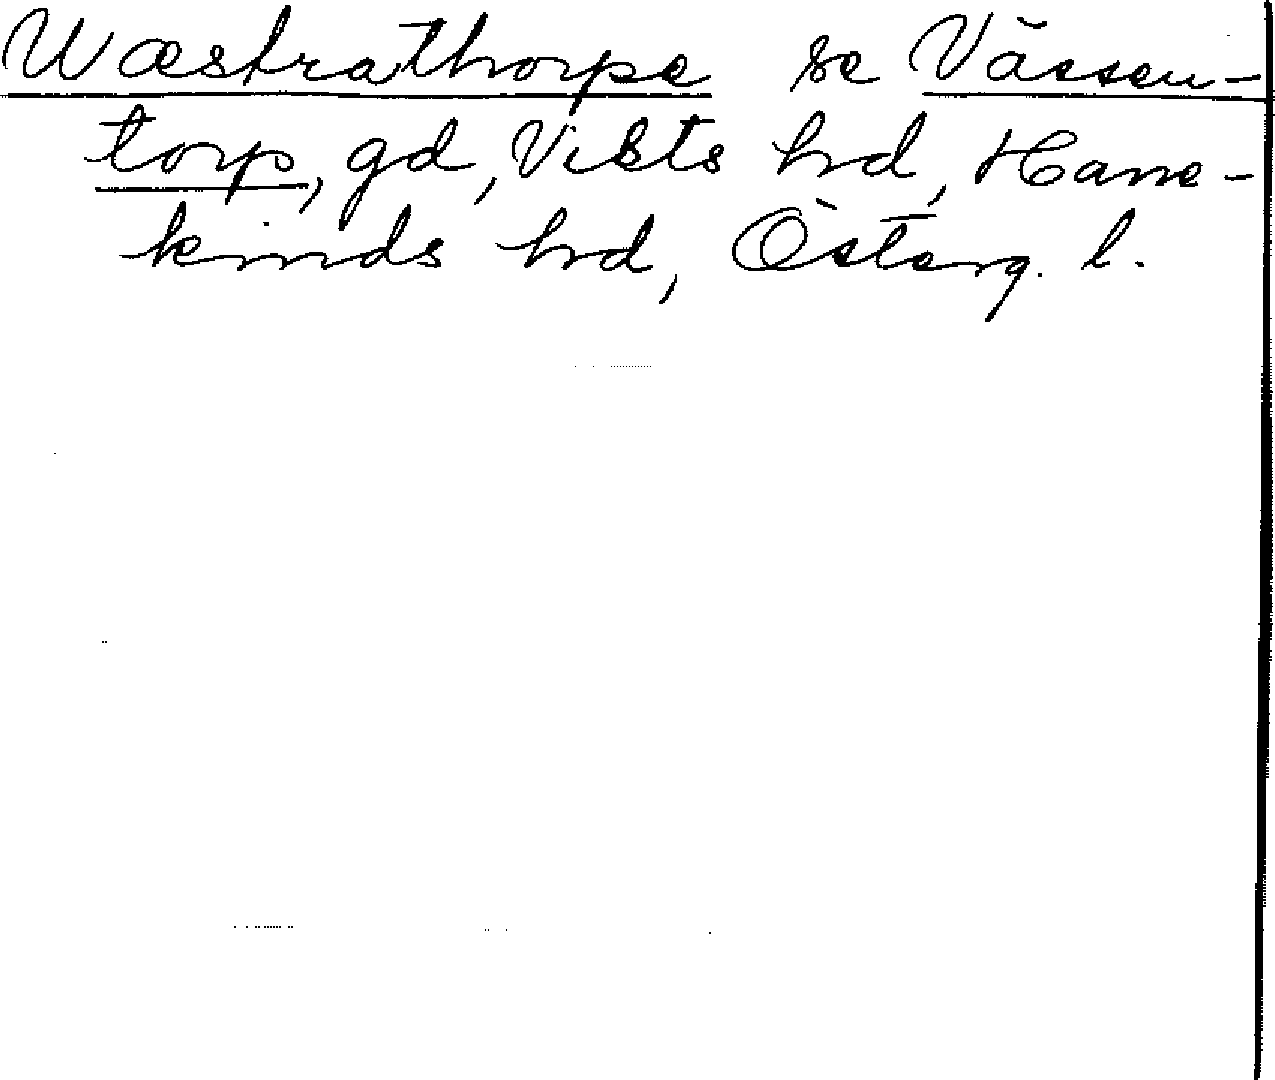 Wæstrathorpe se Vässen-
torp, gd, Vists hrd, Hane-
kinds hrd, Österg. l.